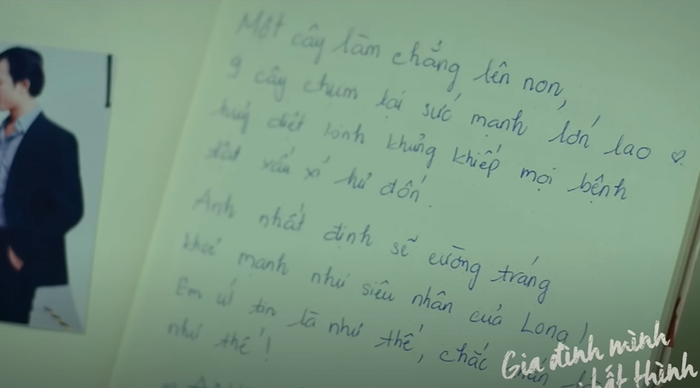 Một cây làm chẳng lên non,
9 cây chụm lại sức mạnh lớn lao
huỷ diệt kinh khủng khiếp mọi bệnh
tật xấu xí hư đốn.
Anh nhất định sẽ cường tráng
khoẻ mạnh như siêu nhân của Long!
Em ứ tin là như thế, chắc
như thế!
Gia đình mình
bất thình